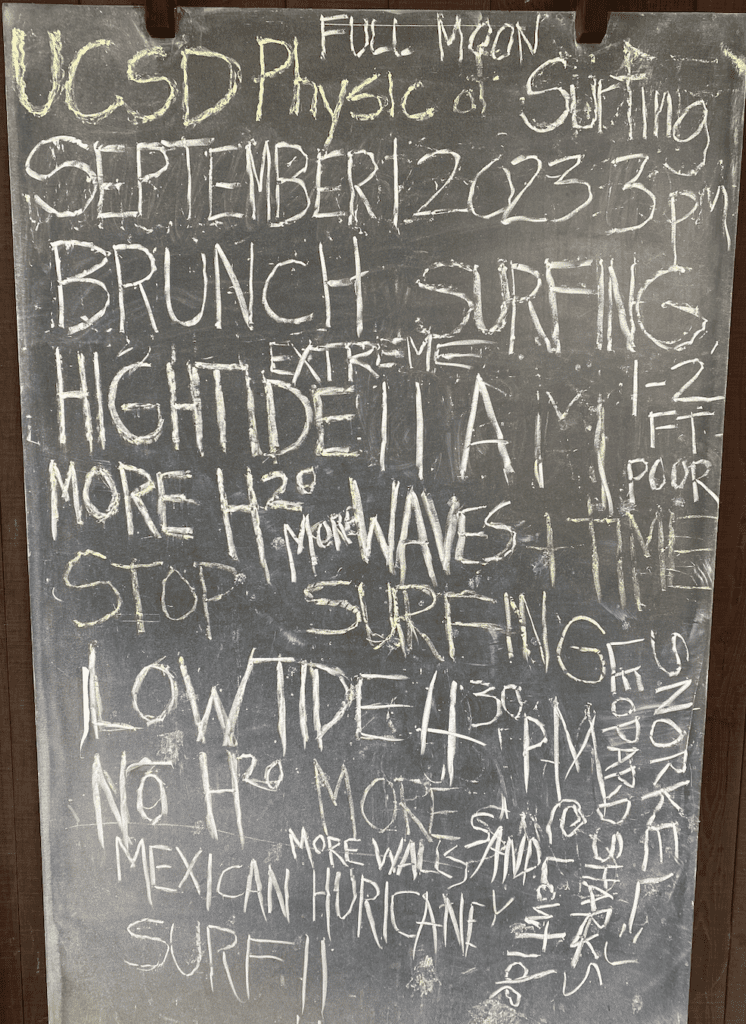 FULL MOON
UCSD Physic of Surfing
SEPTEMBER 1 2023 3 PM
BRUNCH SURFING
EXTREME
HIGHTIDE 11 AM
1-2
FT
POOR
MORE H20 MORE WAVES + TIME
STOP SURFING
LOWTIDE 430 PM
NO H20 MORE SAND
MORE WALLS
MEXICAN HURICANE
SURF!!
SNORKEL
LEOPARD SHARKS
@ Lowtide